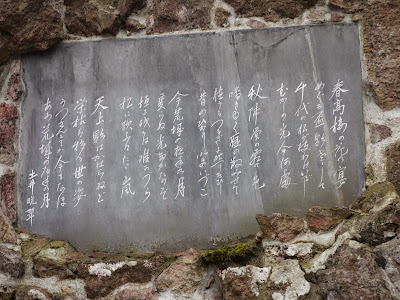 春高楼の花の宴
めぐる盃影さして
千代の松が枝わけいでし
むかしの光今何處
秋陣営の霜の色
鳴きゆく雁の数みせて
植うるつるぎに照りそひし
昔の光今いづこ
今荒城の夜半の月
変らぬ光たがためぞ
垣に残るは唯かつら
松に歌ふはたゞ嵐
天上影はかはらねど
栄枯は移る世の姿
うつさんとてか今もなほ
あゝ荒城の夜半の月
土井晩翠